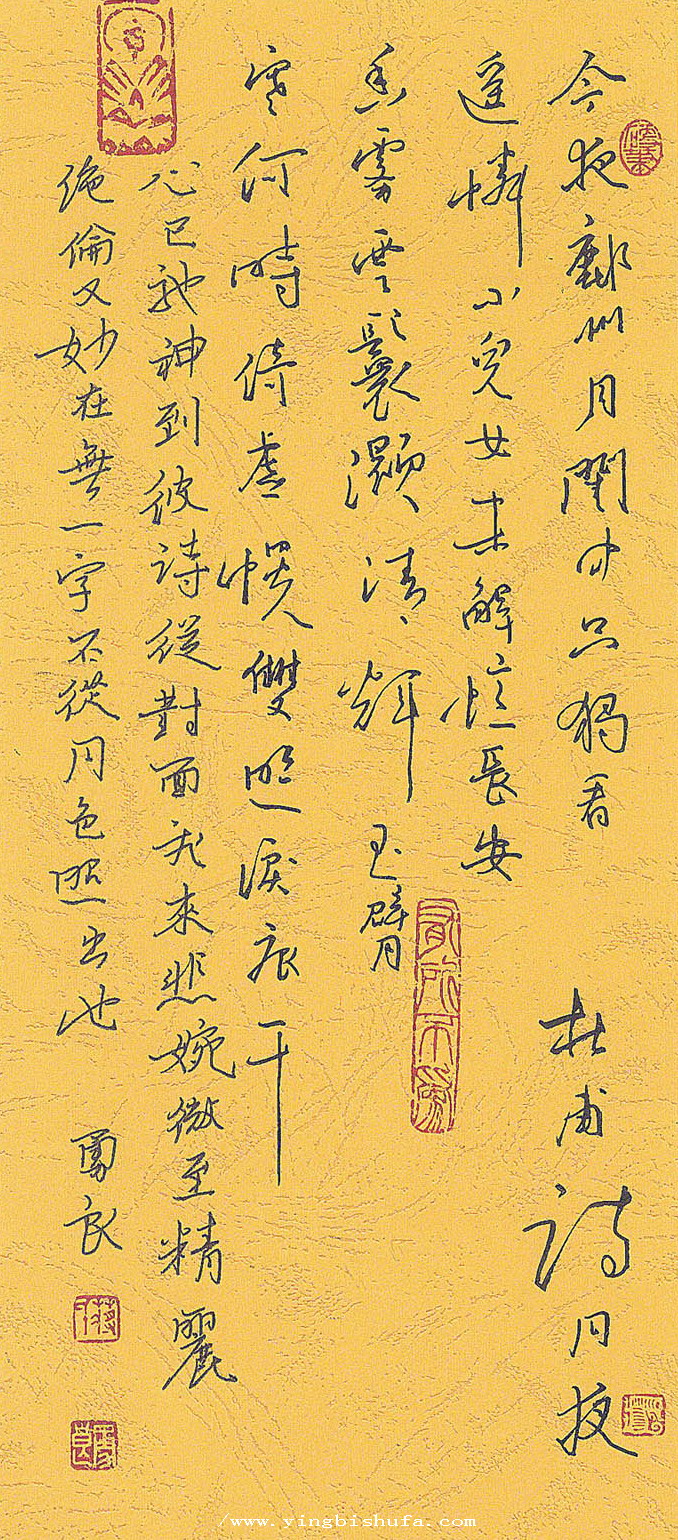 今夜鄜州月閨中只獨看
杜甫詩月夜
遥憐小兒女未解憶長安
香霧雲鬟濕清輝玉臂
有所不為
寒何時倚虛幌雙照淚痕干
心已馳神到彼詩從對面飛來悲婉微至精麗
絶倫又妙在無一字不從月色照出也
勇良
/www.yingbishufa.com